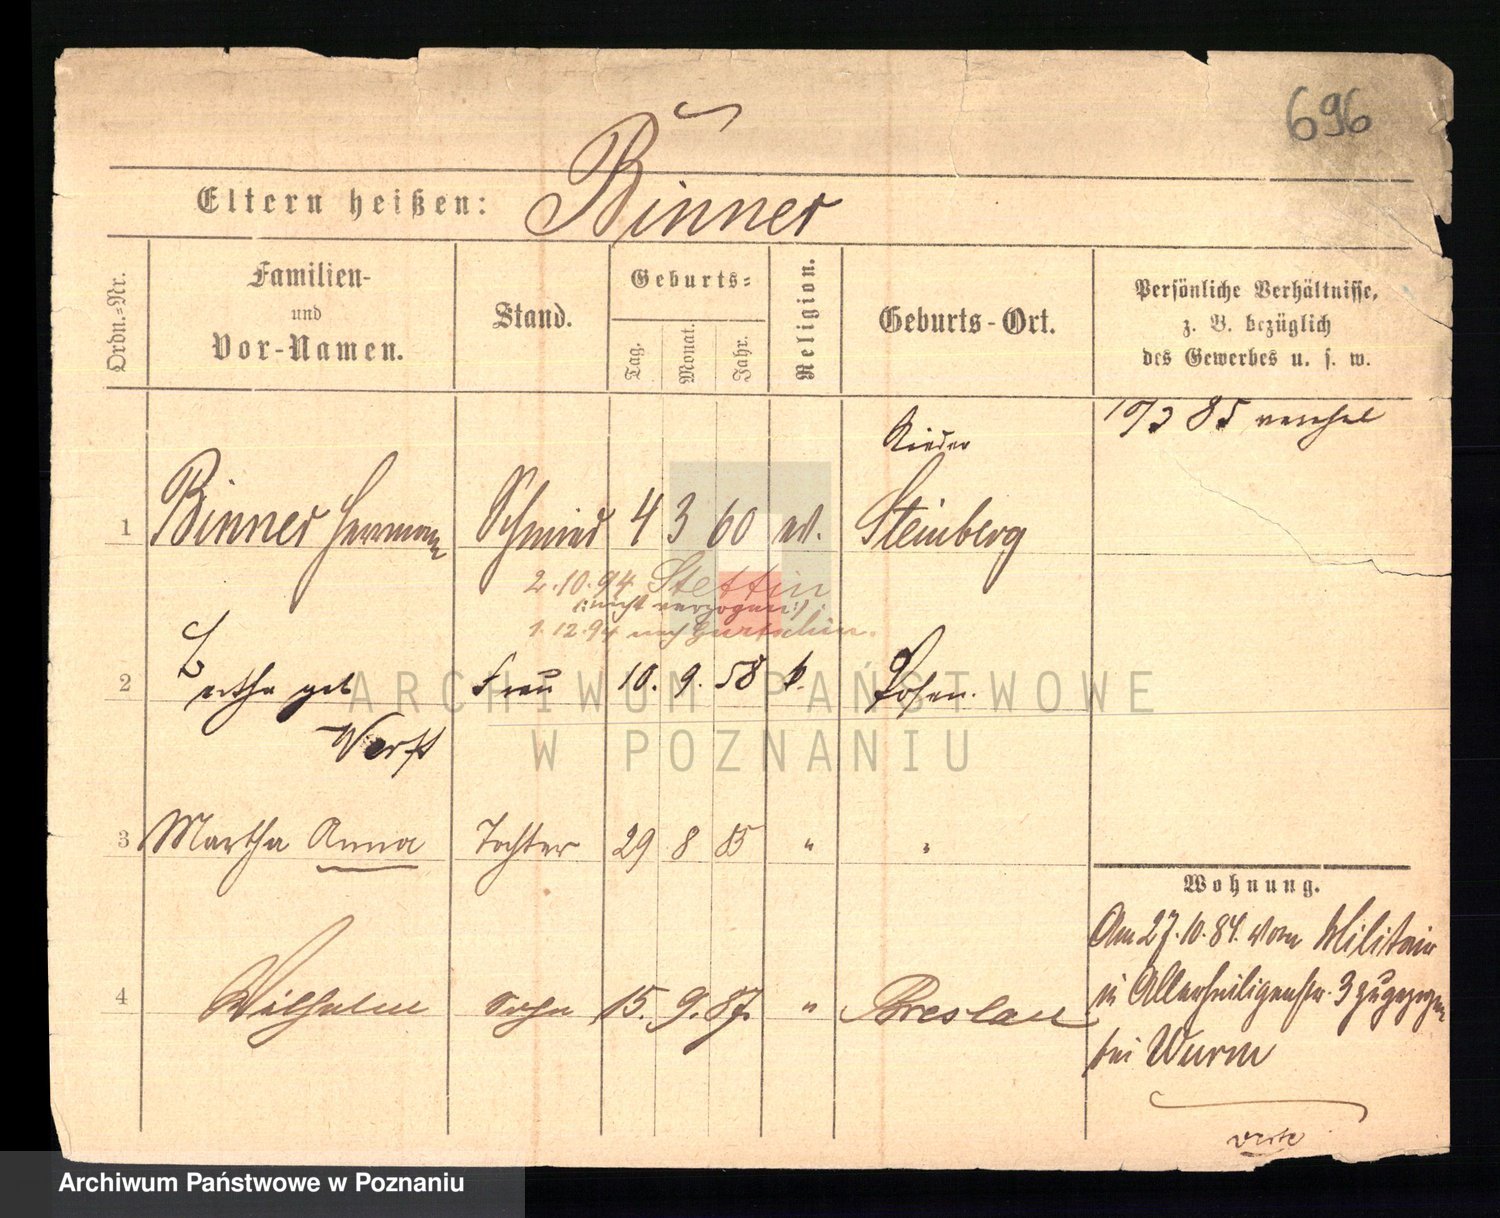 696
Eltern heißen: Binner
Ordn.-Nr.
Familien-
und
Vor-Namen.
Stand.
Geburts-
Tag.
Monat.
Jahr.
Religion.
Geburts-Ort.
Persönliche Verhältnisse,
z. B. bezüglich
des Gewerbes u. s. w.
10/3 85
Nieder
1 Binner Herrmann Schmied 4 3 60 ev. Steinberg
2.10.94 Stettin
(: nicht verzogen :)
1.12.94 nach
2 Bertha geb. Frau 10. 9. 58 k. Posen.
Werft
3 Martha Anna Tochter 29 8 85 " "
4 Wilhelm Sohn 15. 9. 87. " Breslau
Wohnung.
Am 27.10.84. vom Militair
in Allerheiligenstr. 3 zugezogen
bei Wurm
verte
ARCHIWUM PAŃSTWOWE
W POZNANIU
Archiwum Państwowe w Poznaniu